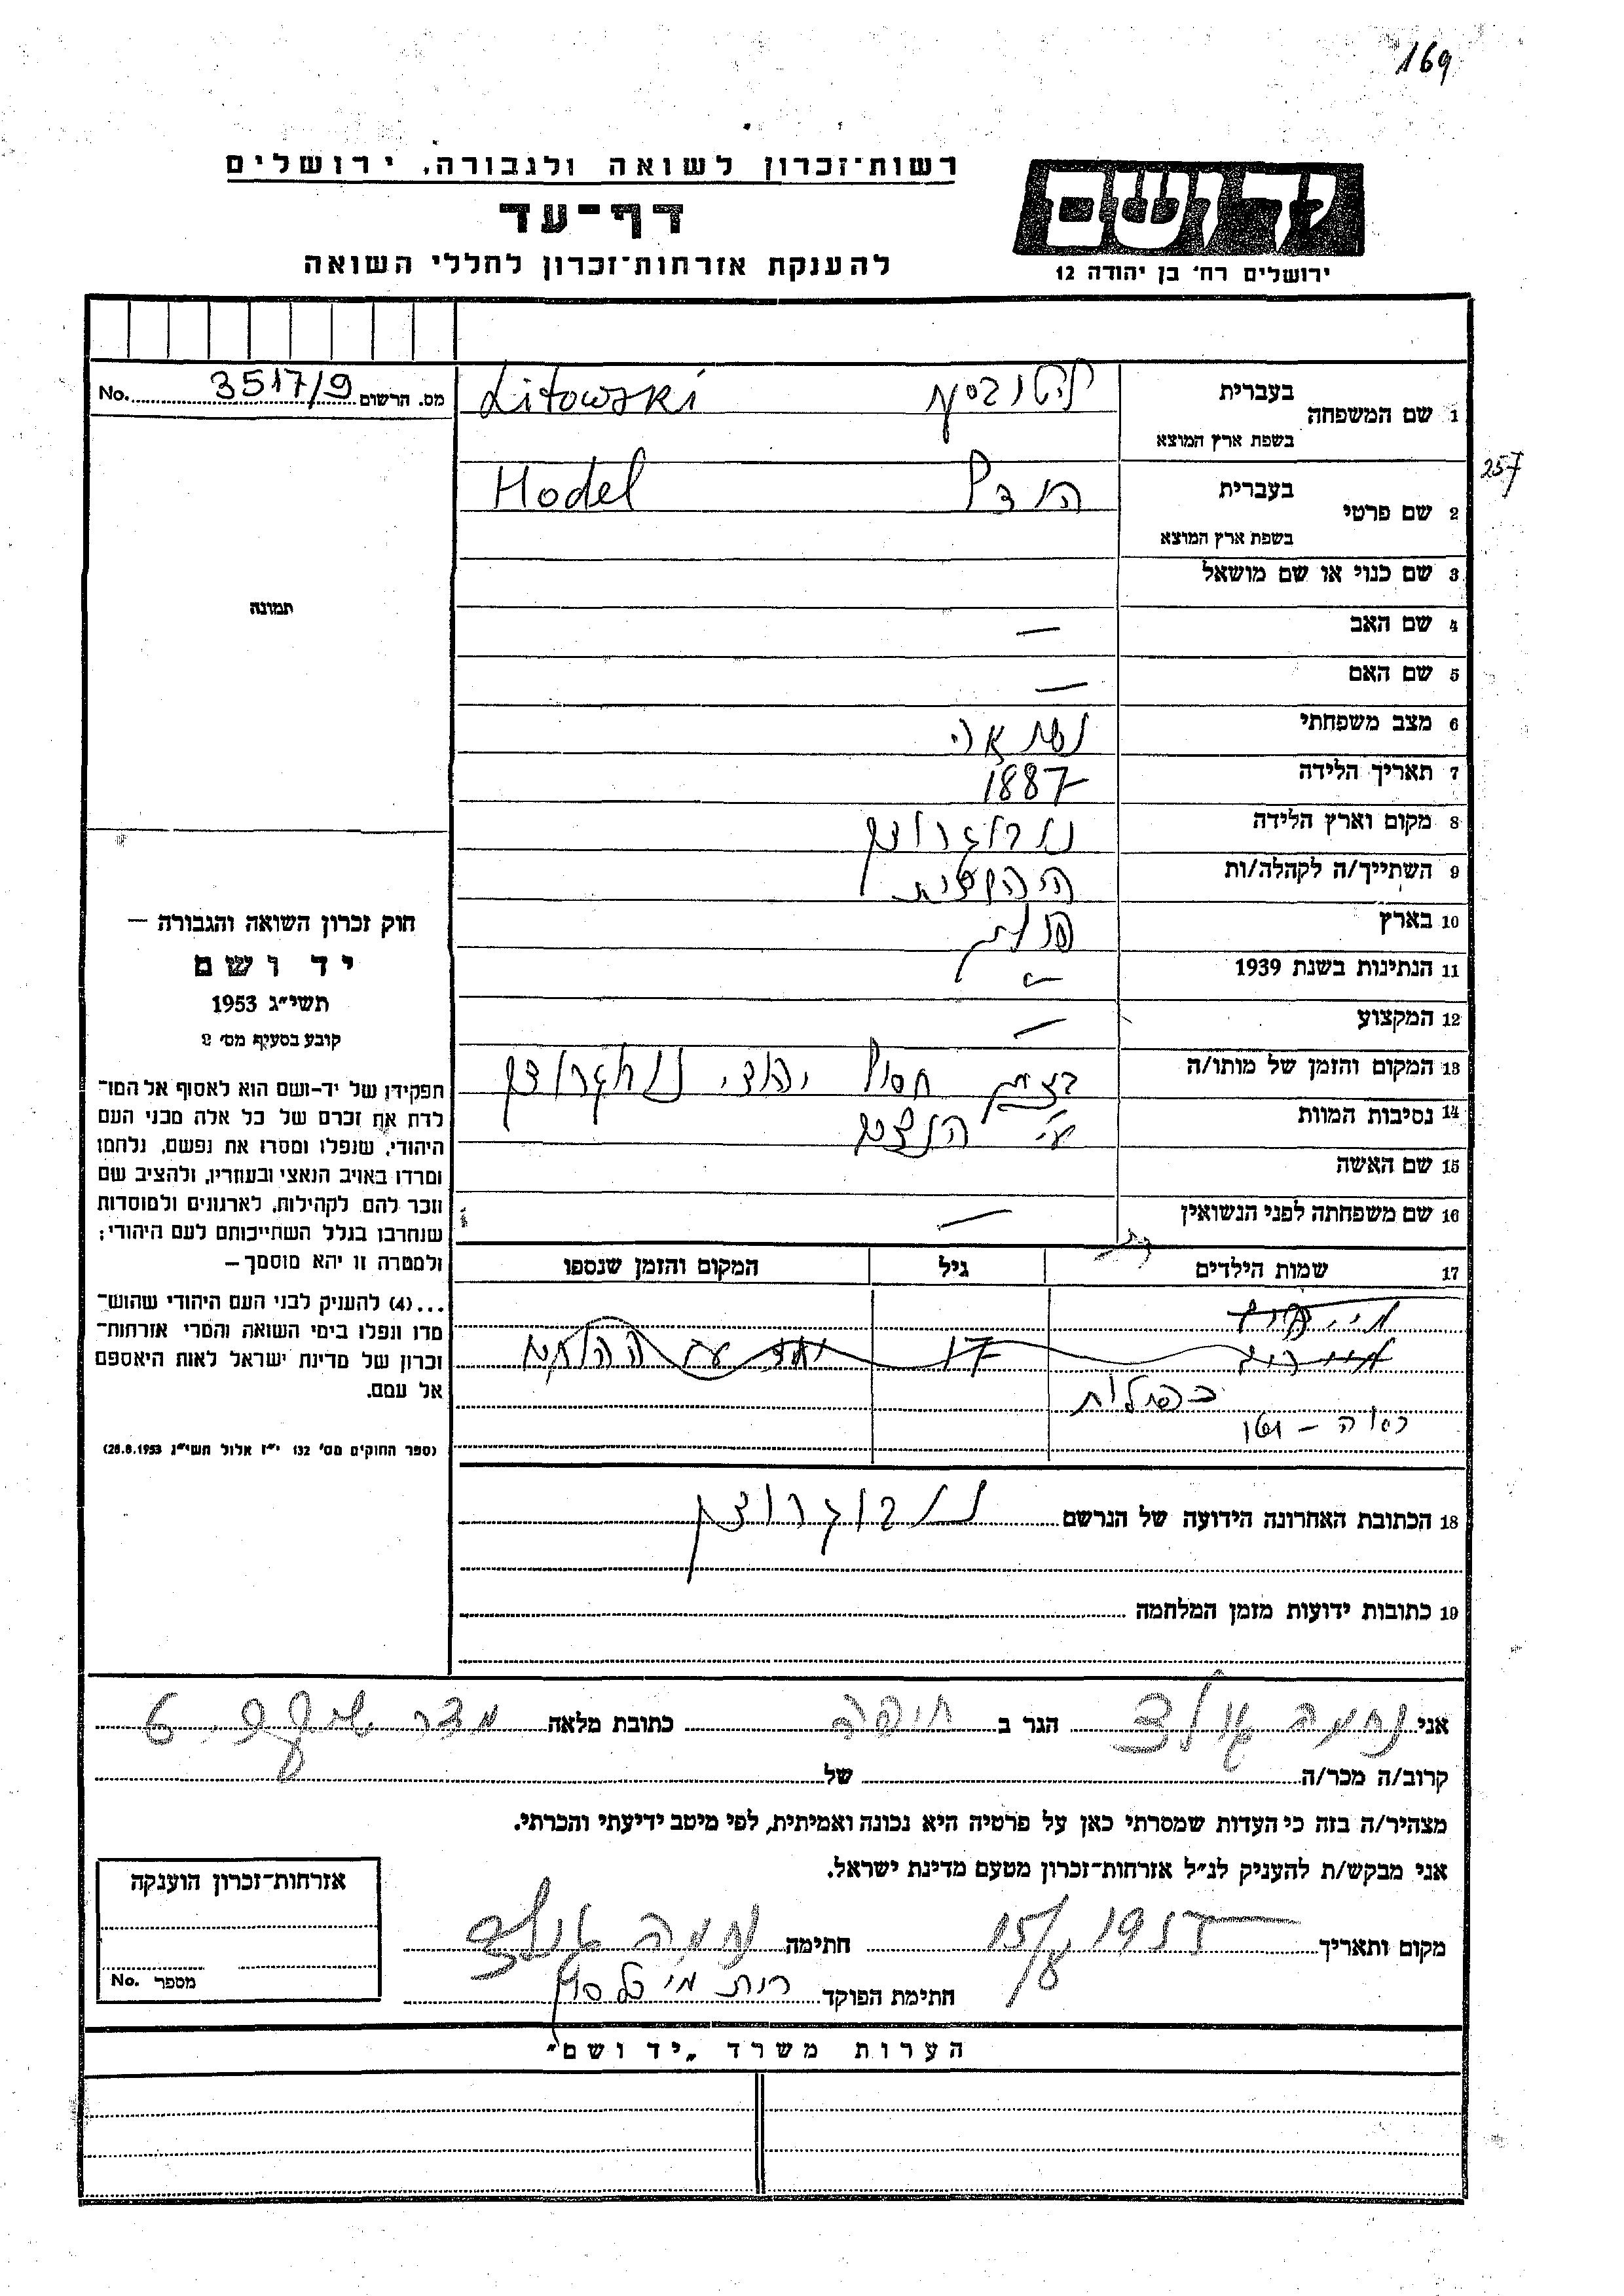 169
רשות־זכרון לשואה ולגבורה, ירושלים
דף־עד
להענקת אזרחות־זכרון לחללי השואה
יד ושם
ירושלים רח' בן יהודה 12
מס. הרשום 3517/9 No.
תמונה
חוק זכרון השואה והגבורה —
יד ושם
תשי"ג 1953
קובע בסעיף מס' 2
תפקידו של יד-ושם הוא לאסוף אל המו־
לדת את זכרם של כל אלה מבני העם
היהודי, שנפלו ומסרו את נפשם, נלחמו
ומרדו באויב הנאצי ובעוזריו, ולהציב שם
וזכר להם לקהילות, לארגונים ולמוסדות
שנחרבו בגלל השתייכותם לעם היהודי;
ולמטרה זו יהא מוסמך —
...(4) להעניק לבני העם היהודי שהוש־
מדו ונפלו בימי השואה והמרי אזרחות־
זכרון של מדינת ישראל לאות היאספם
אל עמם.
(ספר החוקים מס' 132 י"ז אלול תשי"ג 28.8.1953)
1 שם המשפחה בעברית ליטובסקי Litowski
בשפת ארץ המוצא
257
2 שם פרטי בעברית הודל Hodel
בשפת ארץ המוצא
3 שם כנוי או שם מושאל
4 שם האב —
5 שם האם —
6 מצב משפחתי נשואה
7 תאריך הלידה 1887
8 מקום וארץ הלידה
9 השתייך/ה לקהלה/ות
10 בארץ פולין
11 הנתינות בשנת 1939
12 המקצוע —
13 המקום והזמן של מותו/ה בזמן חסול יהודי
14 נסיבות המוות ע"י הנאצים
15 שם האשה
16 שם משפחתה לפני הנשואין —
17 שמות הילדים גיל המקום והזמן שנספו
17
18 הכתובת האחרונה הידועה של הנרשם
19 כתובות ידועות מזמן המלחמה
אני נחמה הגר ב חיפה כתובת מלאה 6
קרוב/ה מכר/ה של
מצהיר/ה בזה כי העדות שמסרתי כאן על פרטיה היא נכונה ואמיתית, לפי מיטב ידיעתי והכרתי.
אני מבקש/ת להעניק לנ"ל אזרחות־זכרון מטעם מדינת ישראל.
מקום ותאריך חתימה נחמה
חתימת הפוקד רות
אזרחות־זכרון הוענקה
מספר No.
הערות משרד „יד ושם"